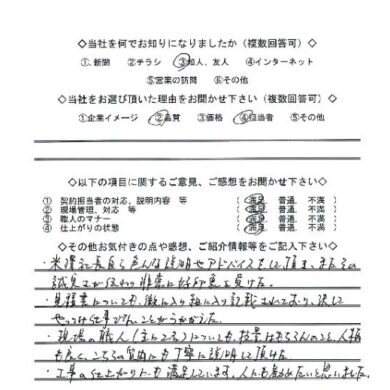 ◇当社を何でお知りになりましたか（複数回答可）◇
①．新聞　②チラシ　③知人、友人　④インターネット
⑤営業の訪問　⑥その他
◇当社をお選び頂いた理由をお聞かせ下さい（複数回答可）◇
①企業イメージ　②品質　③価格　④担当者　⑤その他
◇以下の項目に関するご意見、ご感想をお聞かせ下さい◇
① 契約担当者の対応、説明内容　等　（ 満足　普通　不満 ）
② 現場管理、対応　等　（ 満足　普通　不満 ）
③ 職人のマナー　（ 満足　普通　不満 ）
④ 仕上がりの状態　（ 満足　普通　不満 ）
◇その他お気付きの点や感想、ご紹介情報等をご記入下さい◇
・米澤社長自ら色んな説明やアドバイスをして頂き、またその
誠実さが伝わり非常に好印象を受けた。
・見積書についても、微に入り細に入り記載されており、決して
やっつけ仕事でないことがうかがえた。
・現場の職人（主に）についても、技量はもちろんのこと、人柄
も良く、こちらの質問にも丁寧に説明して頂けた。
・工事の仕上がりにも満足しています。人にも勧めたいと思いました。